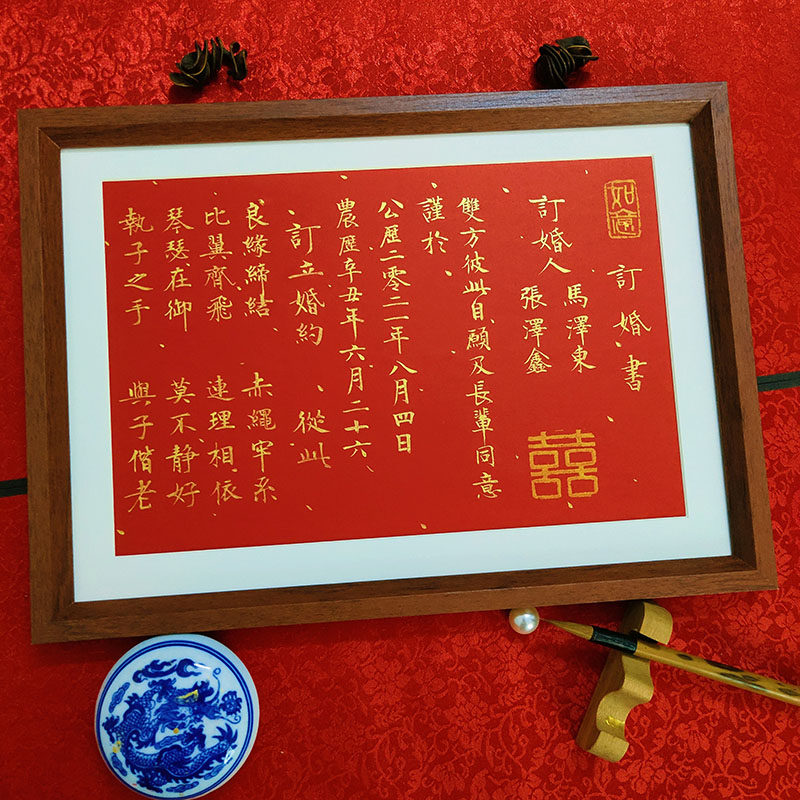 如意
訂婚書
訂婚人 馬澤東
張澤鑫
囍
雙方彼此自願及長輩同意
謹於
公歷二零二一年八月四日
農歷辛丑年六月二十六
訂立婚約 從此
良緣締結 赤繩牢系
比翼齊飛 連理相依
琴瑟在御 莫不靜好
執子之手 與子偕老